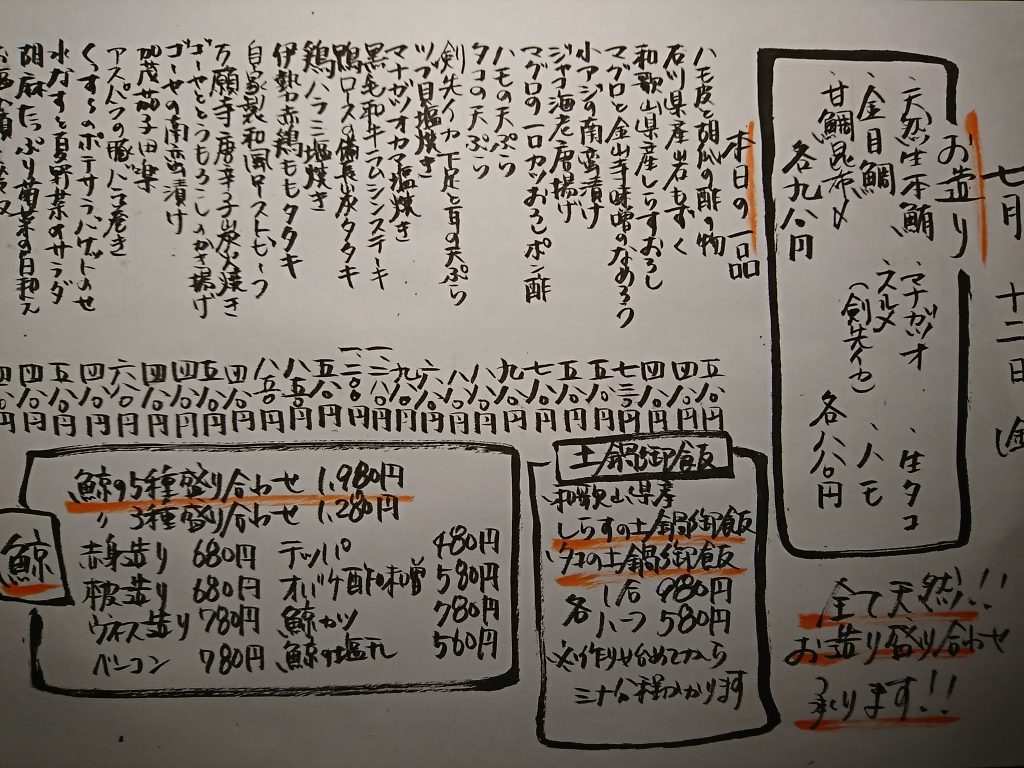 七月十二日(金
お造り
・天然生本鮪
・金目鯛
・甘鯛昆布〆
各九八〇円
・マナガツオ
・スルメ
(剣先イカ)
・生タコ
・ハモ
各八八〇円
全て天然!!
お造り盛り合わせ
承ります!!
本日の一品
ハモ皮と胡瓜の酢の物 五八〇円
石川県産岩もずく 四八〇円
和歌山県産しらすおろし 四八〇円
マグロと金山寺味噌のなめろう 七三〇円
小アジの南蛮漬け 四八〇円
ジャコ海老唐揚げ 五八〇円
マグロの一口カツおろしポン酢 七八〇円
ハモの天ぷら 九八〇円
タコの天ぷら
剣先イカ下足と百の天ぷら
ツブ貝塩焼き 六八〇円
マナガツオカマ塩焼き 九八〇円
黒毛和牛ラムシンステーキ
鴨ロースの備長炭タタキ
鶏ハラミ塩焼き 五八〇円
伊勢赤鶏ももタタキ 八五〇円
自家製和風ローストビーフ 八八〇円
万願寺唐辛子炭火焼き 四八〇円
ゴーヤととうもろこしのかき揚げ 五八〇円
ゴーヤの南蛮漬け 四八〇円
加茂茄子田楽 四八〇円
アスパラの豚バラ巻き 六八〇円
くずし のポテサラバゲットのせ 四八〇円
水なすと夏野菜のサラダ 五八〇円
胡麻たっぷり菊菜の白和え 四八〇円
土鍋御飯
和歌山県産
しらすの土鍋御飯
タコの土鍋御飯
各 1合 980円
ハーフ 580円
※作り始めてから
三十分程かかります
鯨
鯨の5種盛り合わせ 1,980円
〃 3種盛り合わせ 1,280円
赤身造り 680円 テッパ 480円
本皮造り 680円 オバケ酢味噌 580円
ウネス造り 780円 鯨カツ 780円
ベーコン 780円 鯨の塩タレ 560円